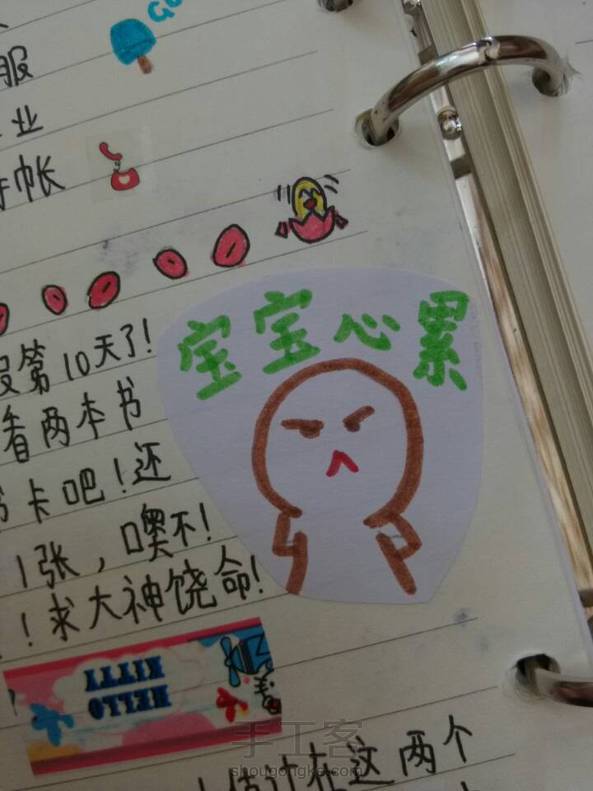 Go
服
业
帐
第10天了!
看两本书
卡吧!还
1张,噢不!
!求大神饶命!
宝宝心累
HELLO
KITTY
估计在这两个
手工客
shougongke.com